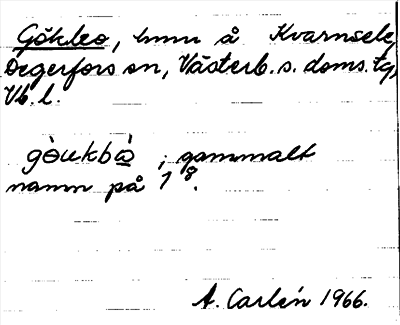 Gökleo, hmn å Kvarnsele,
Degerfors sn, Västerb. s. doms. tg,
Vb. l.
gòukbà ; gammalt
namn på 1⁸.
A. Carlén 1966.